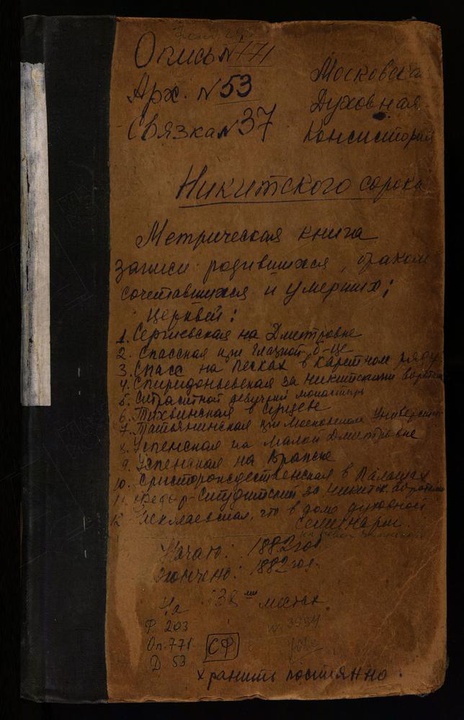 Опись №171
Арх. №53
Связка №37
Московская
Духовная
Консистория
Никитского сорока
Метрическая книга
записи родившихся, браком
сочетавшихся и умерших;
церквей:
1. Сергиевская на Дмитровке
2. Спасская при Глазной б-це
3. Спасс на Песках в Каретном ряду
4. Спиридоньевская за Никитскими воротами
5. Страстной девичий монастырь
6. Тихвинская в Сущеве
7. Татьянинская при Московском Университете
8. Успенская на Малой Дмитровке
9. Успенская на Вражке
10. Христорождественская в Палашах
11. Федор-Студитский за Никитск. воротами
12. Николаевская, что в доме духовной
семинарии
Начато: 1882 год
Окончено: 1882 год.
На 32 местах
Ф. 203
Оп. 778
Д 53
СФ
хранить постоянно.